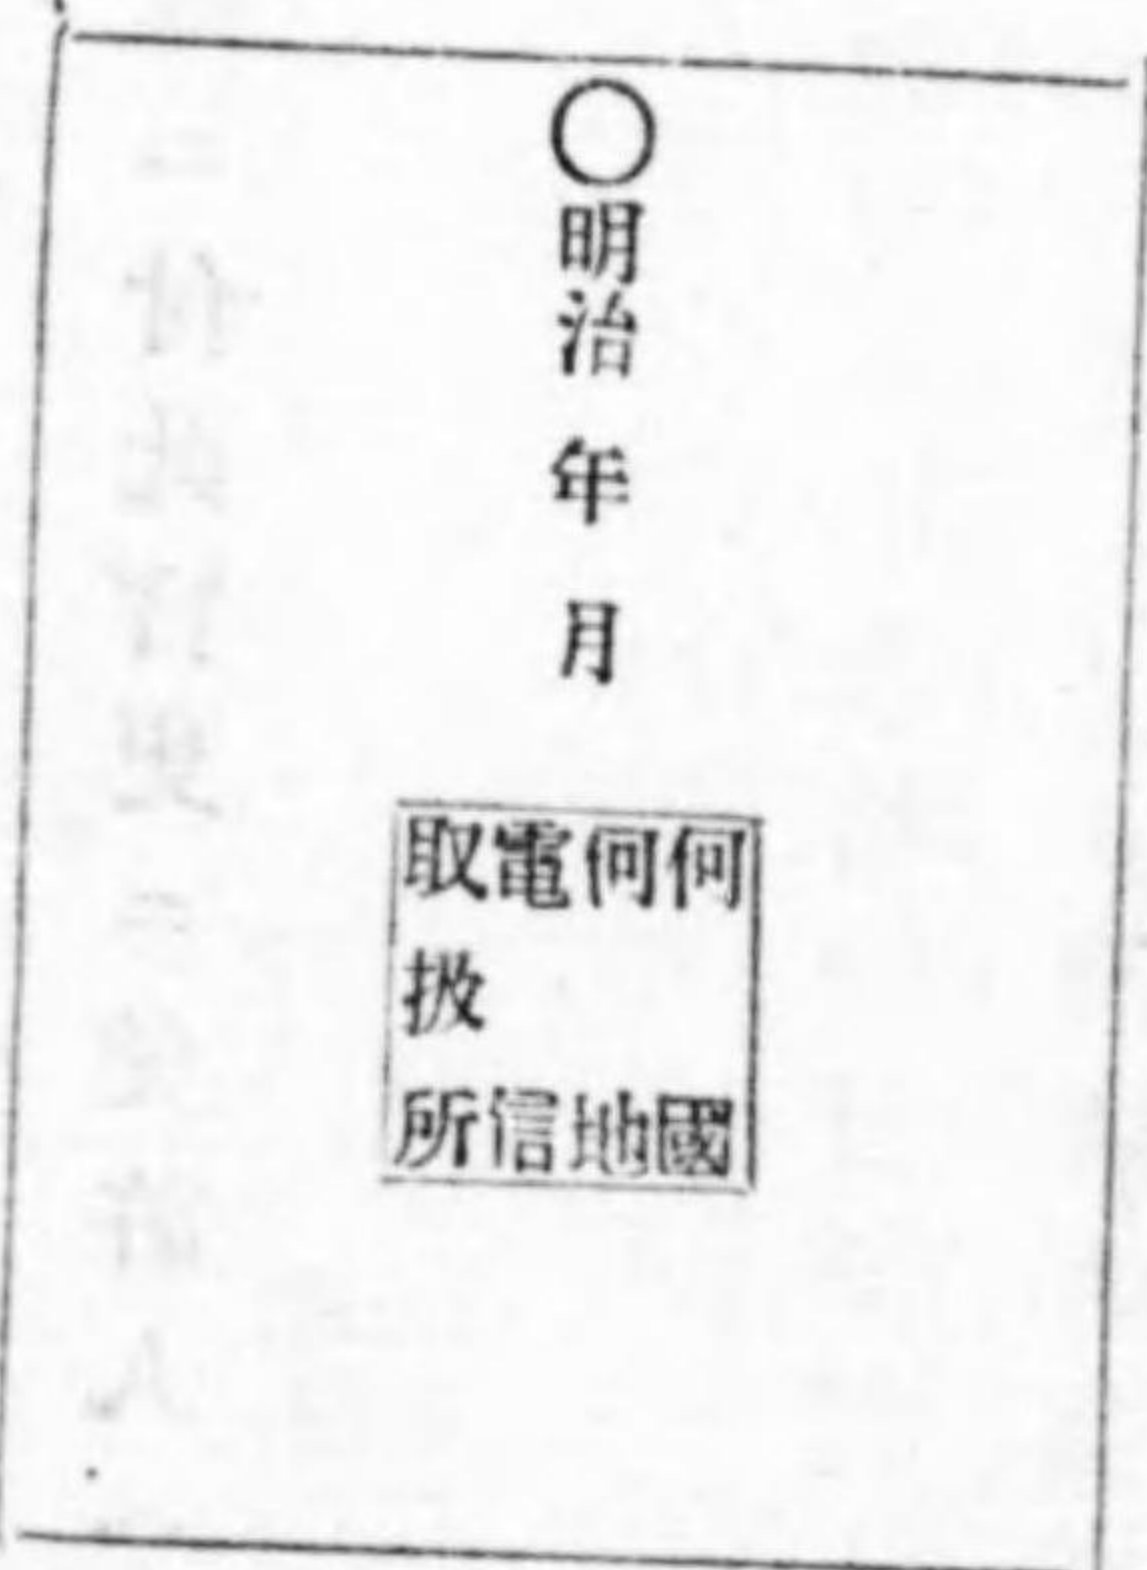 〇明治 年 月
何國
何地
電信
取扱所